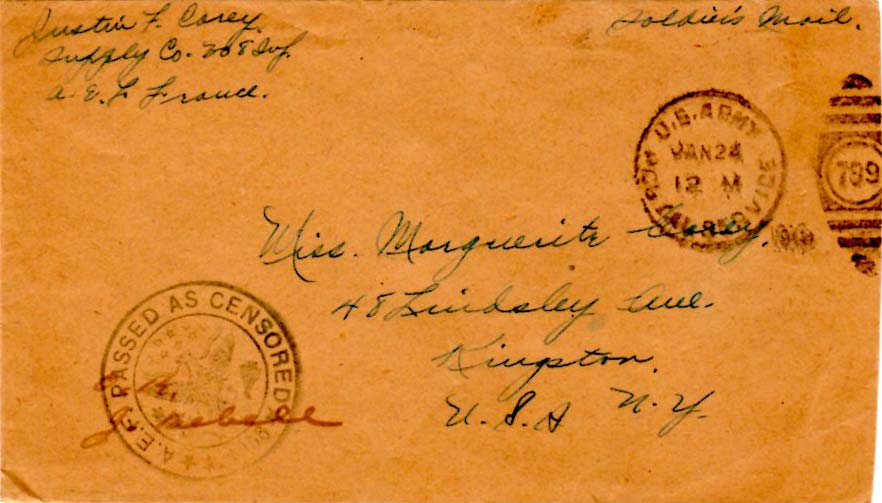 Justin F. Corey.
Supply Co. 308 Inf.
A. E. F. France.
Soldier's Mail.
U.S. ARMY
JAN 24
12 M
SERVICE
799
Miss. Marguerite Corey.
48 Lindsley Ave.
Kingston.
U.S.A N.Y.
A.E.F. PASSED AS CENSORED